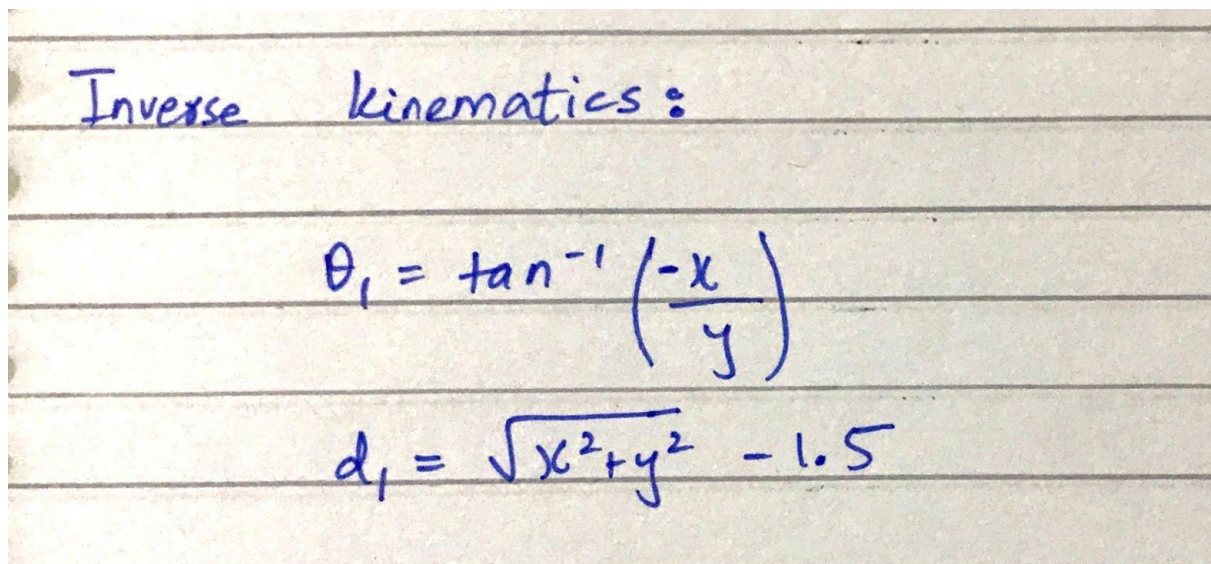 Inverse kinematics:
θ₁ = tan⁻¹ (-x/y)
d₁ = √(x²+y²) - 1.5